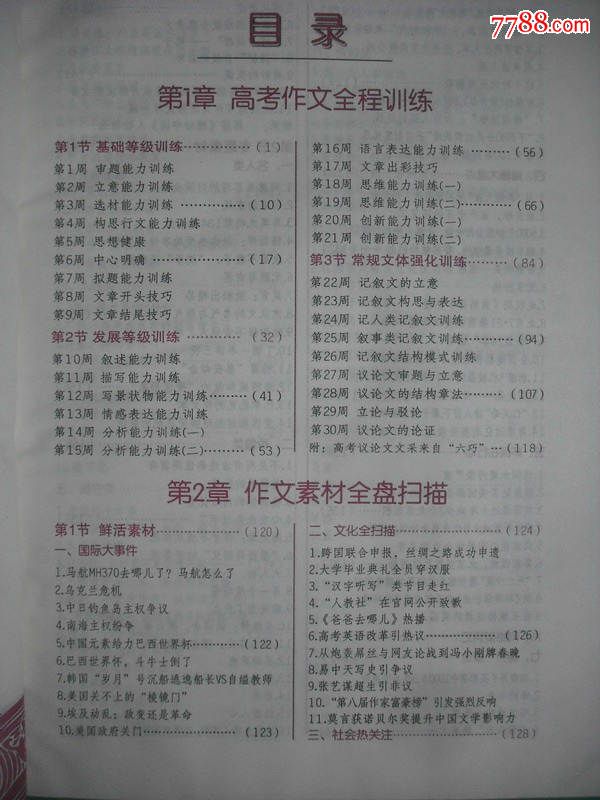 7788.com
目录
第1章 高考作文全程训练
第1节 基础等级训练……………(1)
第1周 审题能力训练
第2周 立意能力训练
第3周 选材能力训练……………(10)
第4周 构思行文能力训练
第5周 思想健康
第6周 中心明确……………(17)
第7周 拟题能力训练
第8周 文章开头技巧
第9周 文章结尾技巧
第2节 发展等级训练……………(32)
第10周 叙述能力训练
第11周 描写能力训练
第12周 写景状物能力训练………(41)
第13周 情感表达能力训练
第14周 分析能力训练(一)
第15周 分析能力训练(二)………(53)
第16周 语言表达能力训练………(56)
第17周 文章出彩技巧
第18周 思维能力训练(一)
第19周 思维能力训练(二)…………(66)
第20周 创新能力训练(一)
第21周 创新能力训练(二)
第3节 常规文体强化训练………(84)
第22周 记叙文的立意
第23周 记叙文构思与表达
第24周 记人类记叙文训练
第25周 叙事类记叙文训练………(94)
第26周 记叙文结构模式训练
第27周 议论文审题与立意
第28周 议论文的结构章法………(107)
第29周 立论与驳论
第30周 议论文的论证
附：高考议论文文采来自“六巧”…(118)
第2章 作文素材全盘扫描
第1节 鲜活素材……………(120)
一、国际大事件
1.马航MH370去哪儿了？马航怎么了
2.乌克兰危机
3.中日钓鱼岛主权争议
4.南海主权纷争
5.中国元素给力巴西世界杯………(122)
6.巴西世界杯，斗牛士倒了
7.韩国“岁月”号沉船逃逸船长VS自缢教师
8.美国关不上的“棱镜门”
9.埃及动乱：政变还是革命
10.美国政府关门……………(123)
二、文化全扫描……………(124)
1.跨国联合申报，丝绸之路成功申遗
2.大学毕业典礼全员穿汉服
3.“汉字听写”类节目走红
4.“人教社”在官网公开致歉
5.《爸爸去哪儿》热播
6.高考英语改革引热议……………(126)
7.从炮轰屌丝与网友论战到冯小刚牌春晚
8.易中天写史引争议
9.张艺谋超生引非议
10.“第八届作家富豪榜”引发强烈反响
11.莫言获诺贝尔奖提升中国文学影响力
三、社会热关注……………(128)